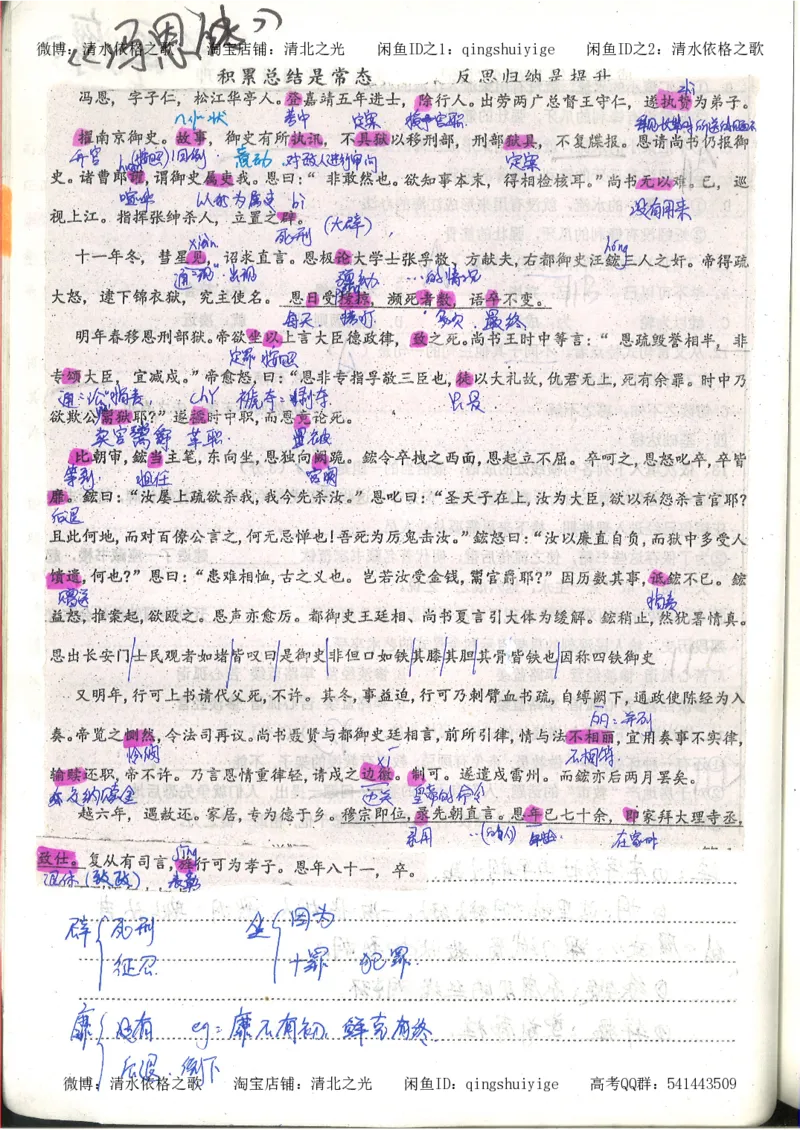 《冯恩传》
微博：清水依格之歌 淘宝店铺：清北之光 闲鱼ID之1：qingshuiyige 闲鱼ID之2：清水依格之歌
积累总结是常态 反思归纳是提升
zhì
冯恩，字子仁，松江华亭人。登嘉靖五年进士，除行人。出劳两广总督王守仁，遂执贽为弟子。
考中 授予官职
擢南京御史。故事，御史有所执讯，不具狱以移刑部，刑部狱具，不复牒报。恩请尚书仍报御
升官 (按照)旧例 对敌人进行审问 定案
史。诸曹郎讙，谓御史属吏我。恩曰：“非敢然也。欲知事本末，得相检核耳。”尚书无以难。已，巡
喧哗 认为 属吏 bì 没有用来
视上江。指挥张绅杀人，立置之辟。
死刑 (大辟)
xiàn hóng
十一年冬，彗星见，诏求直言。恩极论大学士张孚敬、方献夫，右都御史汪鋐三人之奸。帝得疏
通“现” 出现 …的情况
大怒，逮下锦衣狱，究主使名。恩日受搒掠，濒死者数，语卒不变。
每天 拷打 多次 最终
明年春移恩刑部狱。帝欲坐以上言大臣德政律，致之死。尚书王时中等言：“恩疏毁誉相半，非
定罪 按照
专颂大臣，宜减戍。”帝愈怒，曰：“恩非专指孚敬三臣也，徒以大礼故，仇君无上，死有余罪。时中乃
chǐ 只是
欲欺公鬻狱耶？”遂褫时中职，而恩竟论死。
卖官鬻爵 革职 竟被
比朝审，鋐当主笔，东向坐，恩独向阙跪。鋐令卒拽之西面，恩起立不屈。卒呵之，恩怒叱卒，卒皆
等到 担任 宫阙
靡。鋐曰：“汝屡上疏欲杀我，我今先杀汝。”恩叱曰：“圣天子在上，汝为大臣，欲以私怨杀言官耶？
后退
且此何地，而对百僚公言之，何无忌惮也！吾死为厉鬼击汝。”鋐怒曰：“汝以廉直自负，而狱中多受人
馈遗，何也？”恩曰：“患难相恤，古之义也。岂若汝受金钱，鬻官爵耶？”因历数其事，诋鋐不已。鋐
赠送 指责
益怒，推案起，欲殴之。恩声亦愈厉。都御史王廷相、尚书夏言引大体为缓解。鋐稍止，然犹署情真。
恩出长安门士民观者如堵皆叹曰是御史非但口如铁其膝其胆其骨皆铁也因称四铁御史
又明年，行可上书请代父死，不许。其冬，事益迫，行可乃刺臂血书疏，自缚阙下，通政使陈经为入
丽：并列
奏。帝览之恻然，令法司再议。尚书聂贤与都御史廷相言，前所引律，情与法不相丽，宜用奏事不实律，
怜悯 不相符
输赎还职，帝不许。乃言恩情重律轻，请戍之边徼。制可。遂遣戍雷州。而鋐亦后两月罢矣。
边关 皇帝的命令
越六年，遇赦还。家居，专为德于乡。穆宗即位，录先朝直言。恩年已七十余，即家拜大理寺丞，
录用 …(的人) 在家中
致仕。复从有司言，旌行可为孝子。恩年八十一，卒。
退休（致政） jīng 表彰
辟 死刑 坐 因为
征召 +罪 犯罪
靡 没有 eg：靡不有初，鲜克有终
后退、倒下
微博：清水依格之歌 淘宝店铺：清北之光 闲鱼ID：qingshuiyige 高考QQ群：541443509